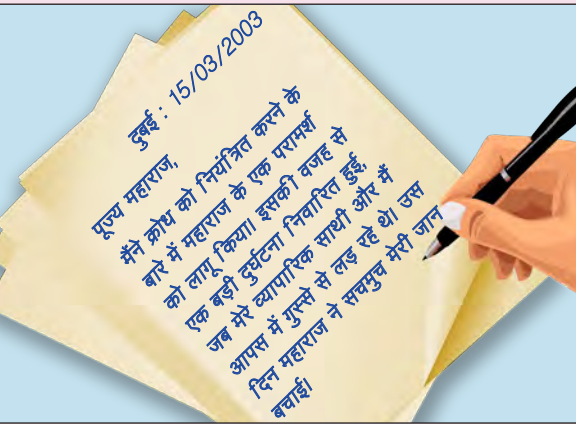 दुबई : 15/03/2003
पूज्य महाराज,
मैंने क्रोध को नियंत्रित करने के
बारे में महाराज के एक परामर्श
को लागू किया। इसकी वजह से
एक बड़ी दुर्घटना निवारित हुई,
जब मेरे व्यापारिक साथी और मैं
आपस में गुस्से से लड़ रहे थे। उस
दिन महाराज ने सचमुच मेरी जान
बचाई।